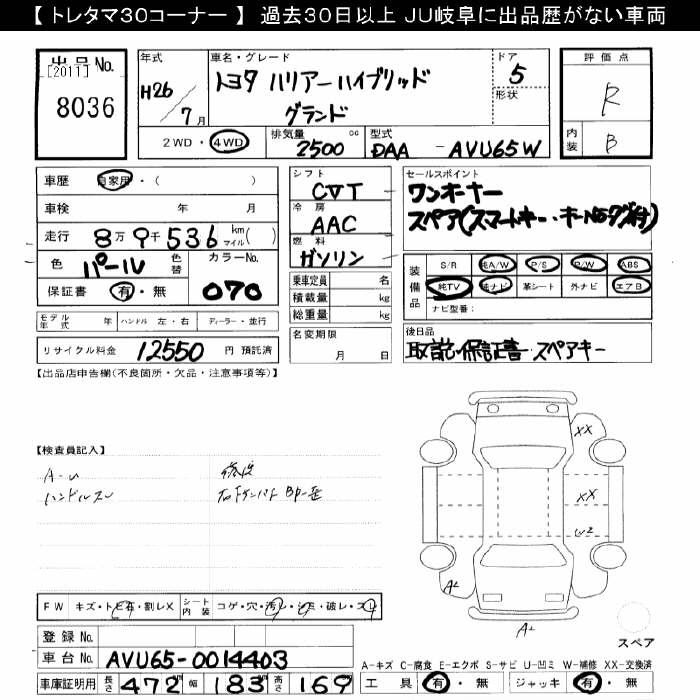 【 トレタマ30コーナー 】 過去30日以上 JU岐阜に出品歴がない車両
出品 No.
[2011]
8036
年式
H26/7月
車名・グレード
トヨタ ハリアーハイブリッド
グランド
ドア
5
形状
2WD・4WD
排気量
2500 cc
型式
DAA - AVU65W
評価点
R
内装
B
車歴 自家用・( )
車検 年 月
走行 8万9千536 kmマイル( )
色 パール 色替 カラーNo.
保証書 有・無 070
モデル年式 年 ハンドル 左・右 ディーラー・並行
リサイクル料金 12550 円 預託済
シフト
CVT
冷房
AAC
燃料
ガソリン
乗車定員 名
積載量 kg
総重量 kg
名変期限
月 日
セールスポイント
ワンオーナー
スペア(スマートキー、キーNoタグ付)
装備品
S/R 純A/W P/S P/W ABS
純TV 純ナビ 革シート 外ナビ エアB
ナビ型番:
後日品
取説・保証書・スペアキー
【出品店申告欄(不良箇所・欠品・注意事項等)】
【検査員記入】
A-u
ハンドルスレ
XX
XX
W2
A2
A2
スペア
FW キズ・トビ石・割レX シート内装 コゲ・穴・汚レ・シミ・破レ・スレ
登録 No.
車台 No. AVU65-0014403
車庫証明用 長さ 472 幅 183 高さ 169
A-キズ C-腐食 E-エクボ S-サビ U-凹ミ W-補修 XX-交換済
工具 有・無 ジャッキ 有・無